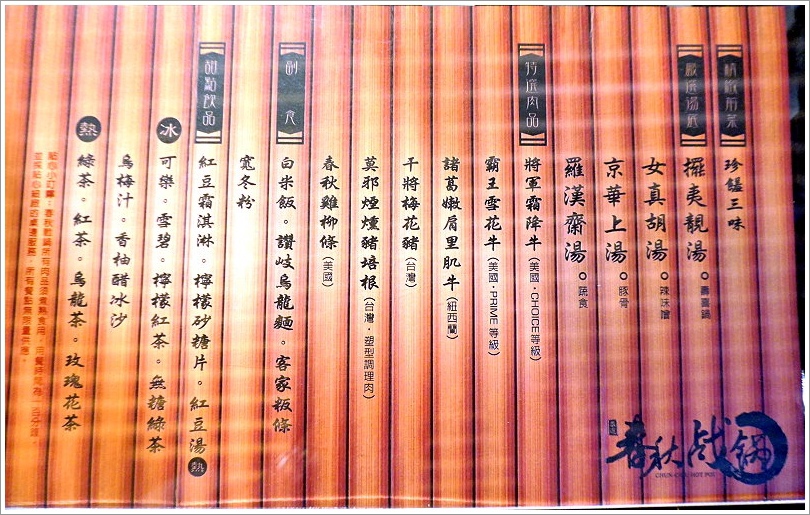 精緻前菜
珍饈三味
嚴選湯底
擺夷靚湯。壽喜鍋
女真胡湯。辣味噌
京華上湯。豚骨
羅漢齋湯。蔬食
特選肉品
將軍霜降牛(美國‧CHOICE等級)
霸王雪花牛(美國‧PRIME等級)
諸葛嫩肩里肌牛(紐西蘭)
干將梅花豬(台灣)
莫邪煙燻豬培根(台灣‧塑型調理肉)
春秋雞柳條(美國)
副食
白米飯。讚岐烏龍麵。客家粄條
寬冬粉
甜點飲品
紅豆霜淇淋。檸檬砂糖片。紅豆湯 熱
冰
可樂。雪碧。檸檬紅茶。無糖綠茶
烏梅汁。香柚醋冰沙
熱
綠茶。紅茶。烏龍茶。玫瑰花茶
貼心小叮嚀：春秋戰鍋所有肉品須煮熟食用，用餐時間為一百分鐘。
並採貼心細緻的桌邊服務，所有餐點無限量供應。
春秋戰鍋
CHUN-CHIU HOT POT